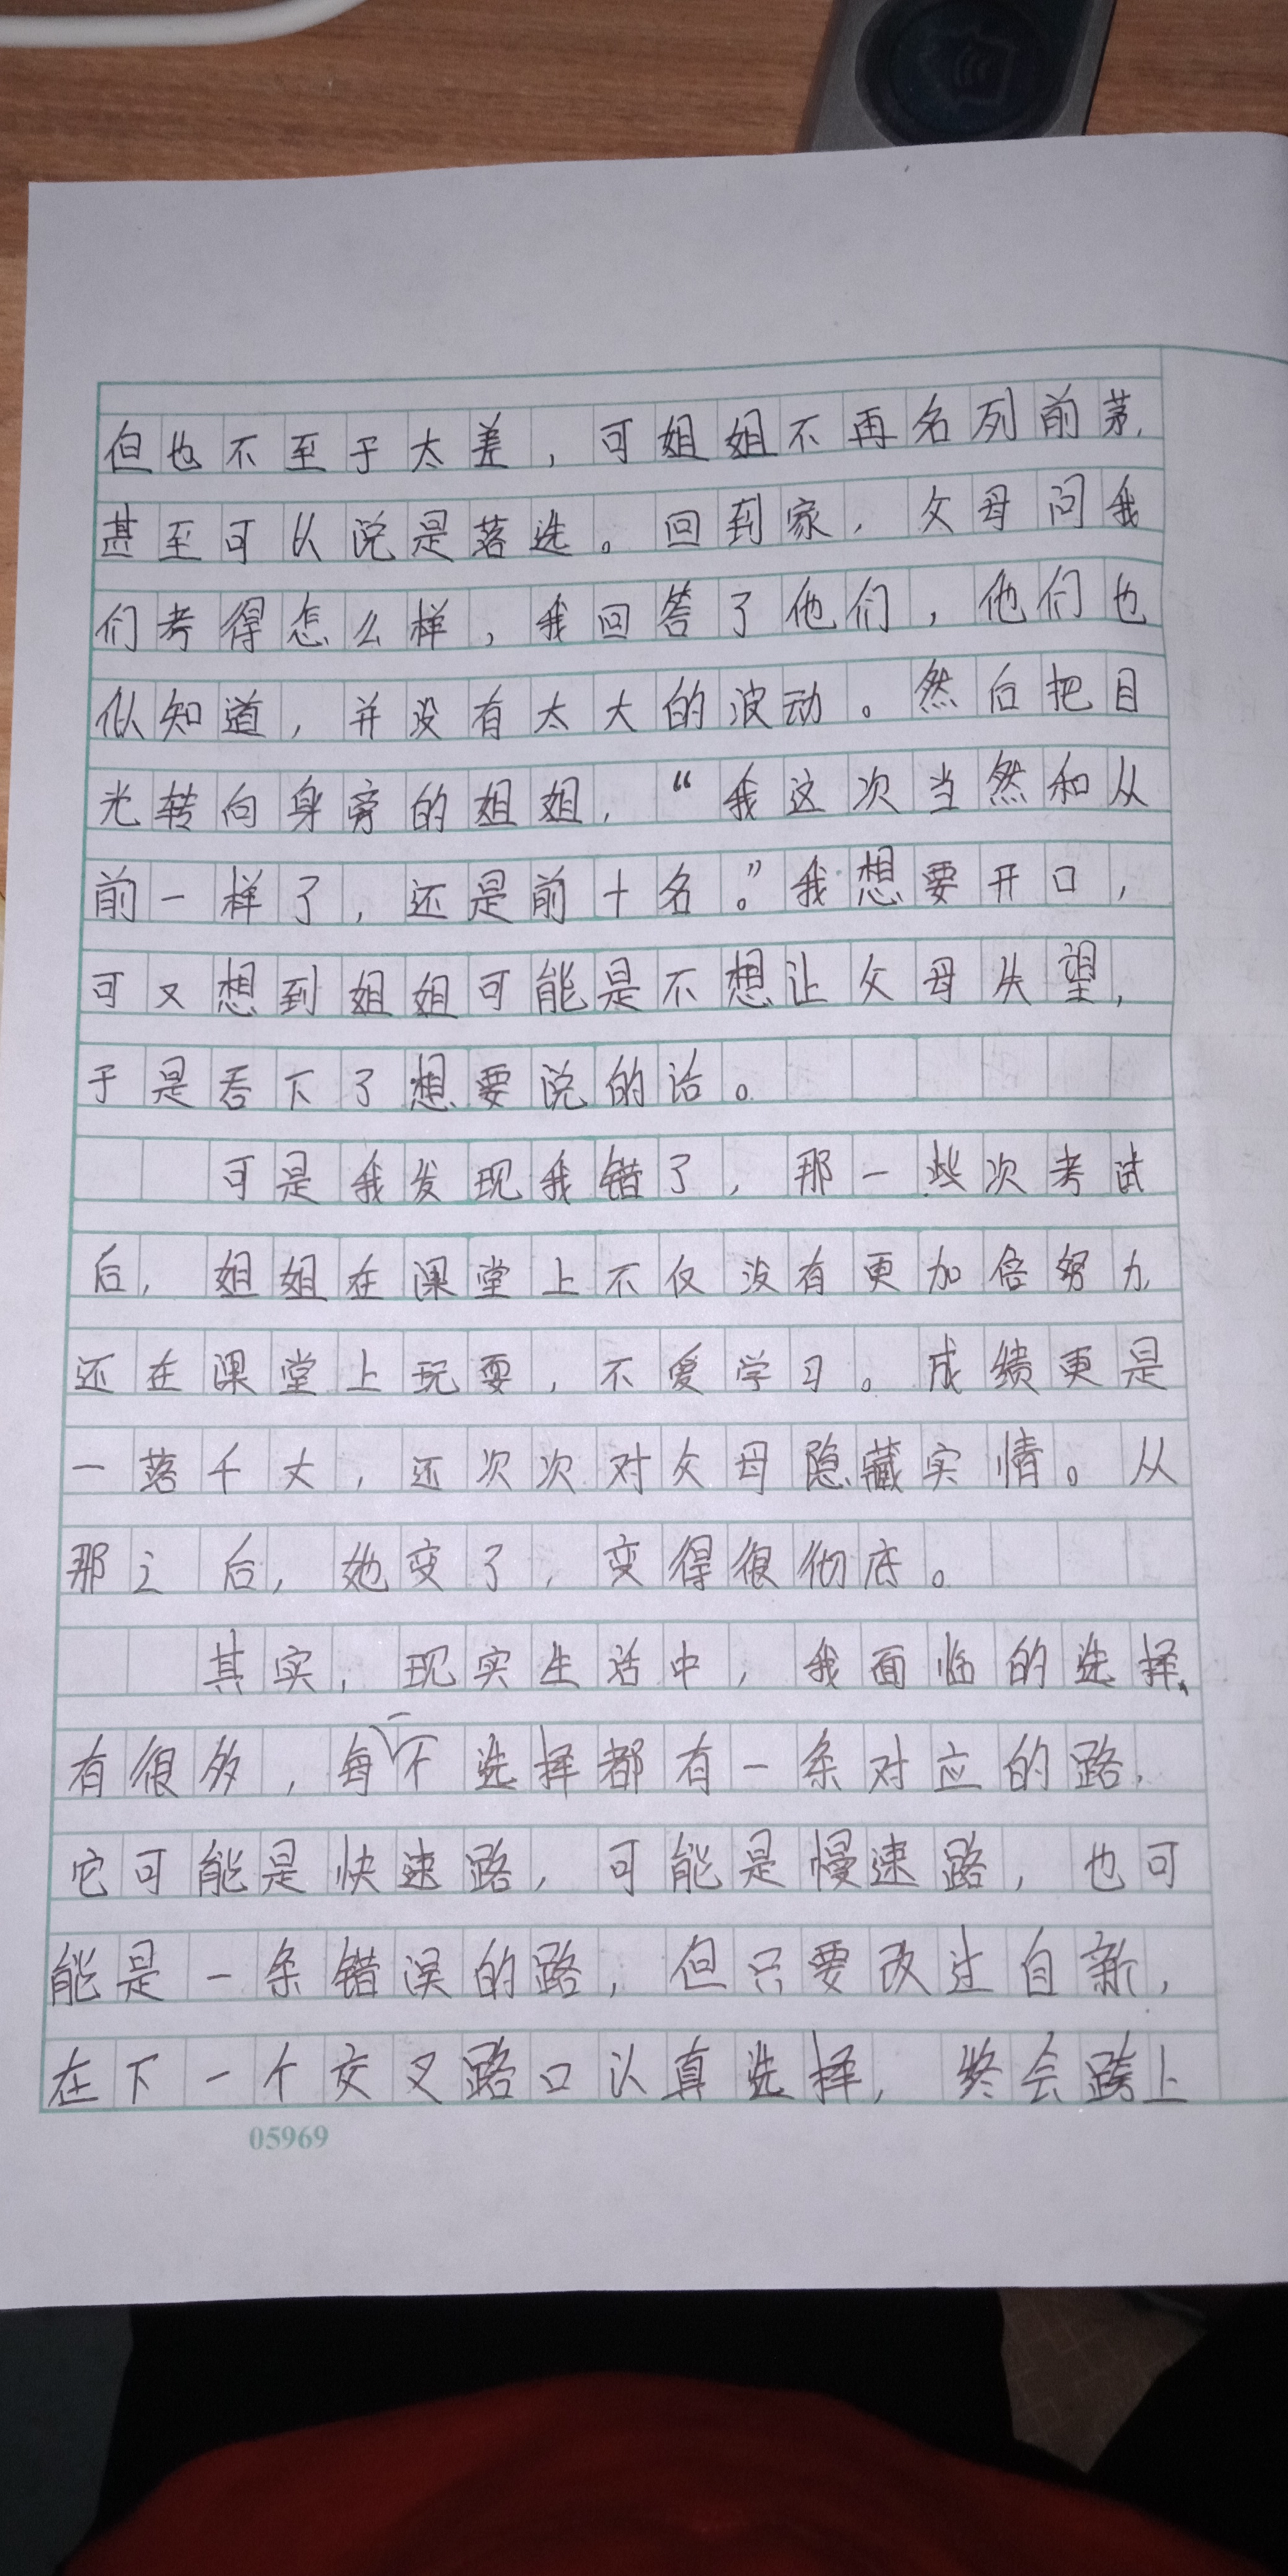 但也不至于太差，可姐姐不再名列前茅，
甚至可以说是落选。回到家，父母问我
们考得怎么样，我回答了他们，他们也
似知道，并没有太大的波动。然后把目
光转向身旁的姐姐，“我这次当然和从
前一样了，还是前十名。”我想要开口，
可又想到姐姐可能是不想让父母失望，
于是吞下了想要说的话。
可是我发现我错了，那一些次考试
后，姐姐在课堂上不仅没有更加倍努力
还在课堂上玩耍，不爱学习。成绩更是
一落千丈，还次次对父母隐藏实情。从
那之后，她变了，变得很彻底。
其实，现实生活中，我面临的选择
有很多，每一个选择都有一条对应的路，
它可能是快速路，可能是慢速路，也可
能是一条错误的路，但只要改过自新，
在下一个交叉路口认真选择，终会踏上
05969